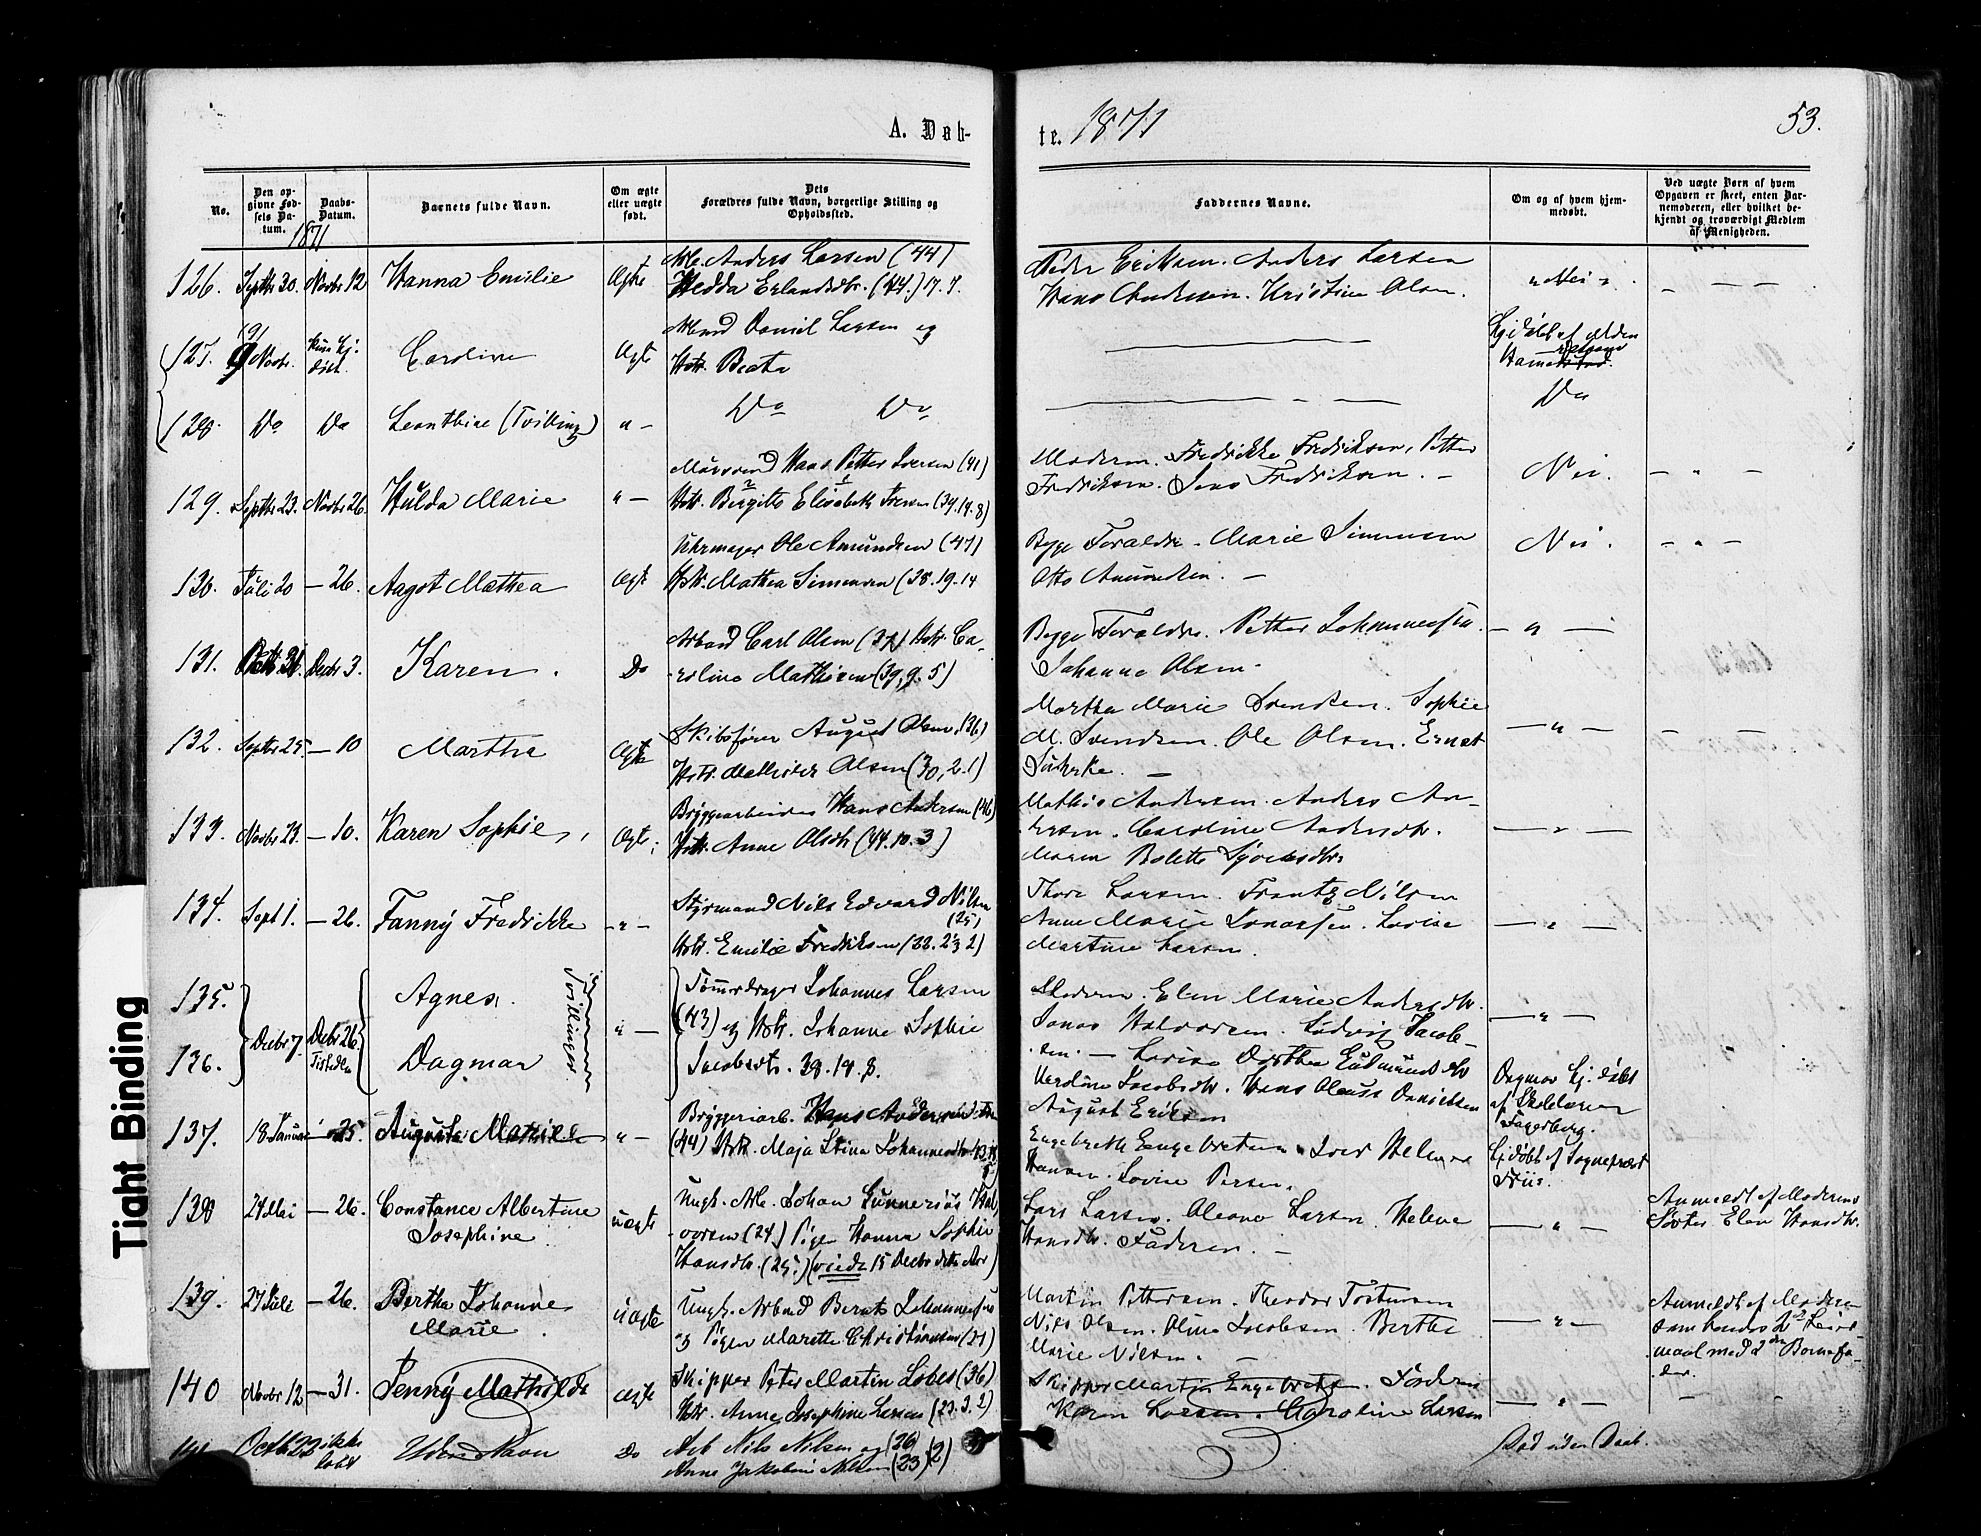 A. Døb-
te. 1871
53.
No.
Den op-
givne Fød-
sels Da-
tum.
Daabs-
Datum.
Barnets fulde Navn.
Om ægte
eller uægte
født.
Dets
Forældres fulde Navn, borgerlige Stilling og
Opholdssted.
Faddernes Navne.
Om og af hvem hjem-
medøbt.
Ved uægte Børn af hvem
Opgaven er skeet, enten Bar-
nemoderen, eller hvilket be-
kjendt og troværdigt Medlem
af Menigheden.
1871
126. Septbr 30. Novbr 12 Hanna Emilie Ægte Anders Larsen (44)
Hedda Erlandsdtr. (44.) 17. 7.
Peder Eriksen. Anders Larsen
Hans Andersen. Kristine Olsen.
" Nei "
127. 9 Novbr. Caroline Ægte Daniel Larsen og
Hstr. Beate
128. Do Do Leonthine (Tvilling) " — Do Do
Do
129. Septbr 23. Novbr 26. Hulda Marie " — Hans Petter Iversen (41)
Hstr. Birgitte Elisabeth Iversen (39. 14. 8)
Moderen. Fredrikke Fredriksen, Petter
Fredriksen. Jens Fredriksen. —
Nei.
130. Juli 20 — 26. Aagot Mathea Ægte Uhrmager Ole Amundsen (47)
Hstr. Mathea Simensen (38. 19. 14
Begge Forældre. Marie Simensen
Otto Amundsen. —
Nei.
131. Decbr 3. Karen. Do Arbmd Carl Olsen (37) Hstr. Ca-
roline Mathisen (39, 9. 5)
Begge Forældre. Petter Johannessen.
Johanne Olsen.
132. Septbr 25. — 10 Martha Ægte Skibsfører August Olsen (36)
Hstr. Mathilde Olsen (30, 2. 1)
Martha Marie Svendsen. Sophie
M. Svendsen. Ole Olsen. Ernst
133. Novbr 23. — 10. Karen Sophie, Ægte; Bryggearbeider Hans Andersen (46)
Hstr. Anne Olsdtr (44. 10. 3)
Mathis Andersen. Anders An-
dersen. Caroline Andersdtr.
Maren Bolette
134. Sept 1. — 26. Fanny Fredrikke — " — Styrmand Nils Edvard Nilsen
(25)
Hstr. Emilie Fredriksen (22. 2 2)
Thore Larsen. Frantz Nilsen
Anne Marie Jonassen. Lovise
Martine Larsen.
135. Agnes.
136. Decbr 7. Decbr 26. Dagmar Tvillinger " — Tømrdrager Johannes Larsen
(43) og Hstr. Johanne Sophie
Jacobsdtr. 39. 14. 8.
Moderen. Elen Marie Andersdtr.
Jonas Halvorsen. Ludvig Jacob-
sen. — Lovise Dorthea
Jacobsdtr. Hans Olaus Danielsen
August Eriksen
Dagmar Hj. døbt
af Skolelærer
Fagerberg.
137. 18 Januar 25. Augusta Mathilde " — Bryggeriarb. Hans Andersen
(44) Hstr. Maja Stina Johannesdtr
Engebreth Engebretsen. Iver
Hansen. Lovise Persen.
Hjdøbt af Sogneprest
Friis.
138 24 Mai — 26. Constance Albertine
Josephine
uægte Ungk. Johan Gunnerius Hal-
vorsen (24.) Pigen Hanna Sophie
Hansdtr. (25.) (viede 15 Decbr dette Aar)
Lars Larsen. Oleane Larsen. Helene
Hansdtr. Faderen. —
Anmeldt af Moderens
Søster Elen Hansdtr.
139. 27 Juli — 26. Bertha Johanne
Marie.
uægte Ungk. Arbmd Bernt Johannessen
og Pigen Marethe Christiansen (21)
Martin Pettersen. Theodor Torstensen
Nils Olsen. Oline Jacobsen. Berthe
Marie Nilsen. —
Anmeldt af Moderen
som hendes 2d Leier-
maal med 2den Barnefa-
der.
140 Novbr 12 — 31. Jenny Mathilde Ægte Skipper Peter Martin (36)
Hstr. Anne Josephine Larsen (27. 3. 2)
Skipper Martin Engebretsen. Faderen
Karen Larsen. Caroline Larsen
141 Octbr 22 ikke
døbt Uden Navn Do Arb Nils Nilsen og (26)
Anne Jakobine Nilsen (23) (2)
Død uden Daab.
Tight Binding